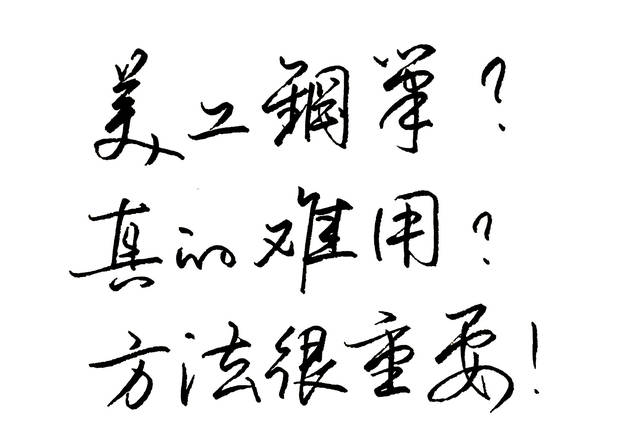 美工鋼筆？
真的难用？
方法很重要！